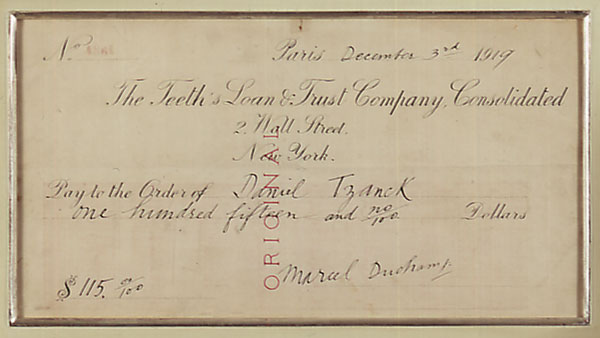 No
Paris December 3rd 1919
The Teeth's Loan & Trust Company, Consolidated
2 Wall Street.
New York.
Pay to the Order of Daniel Tzanck
one hundred fifteen and no/100 Dollars
$ 115. 00/100
Marcel Duchamp.
ORIGINAL